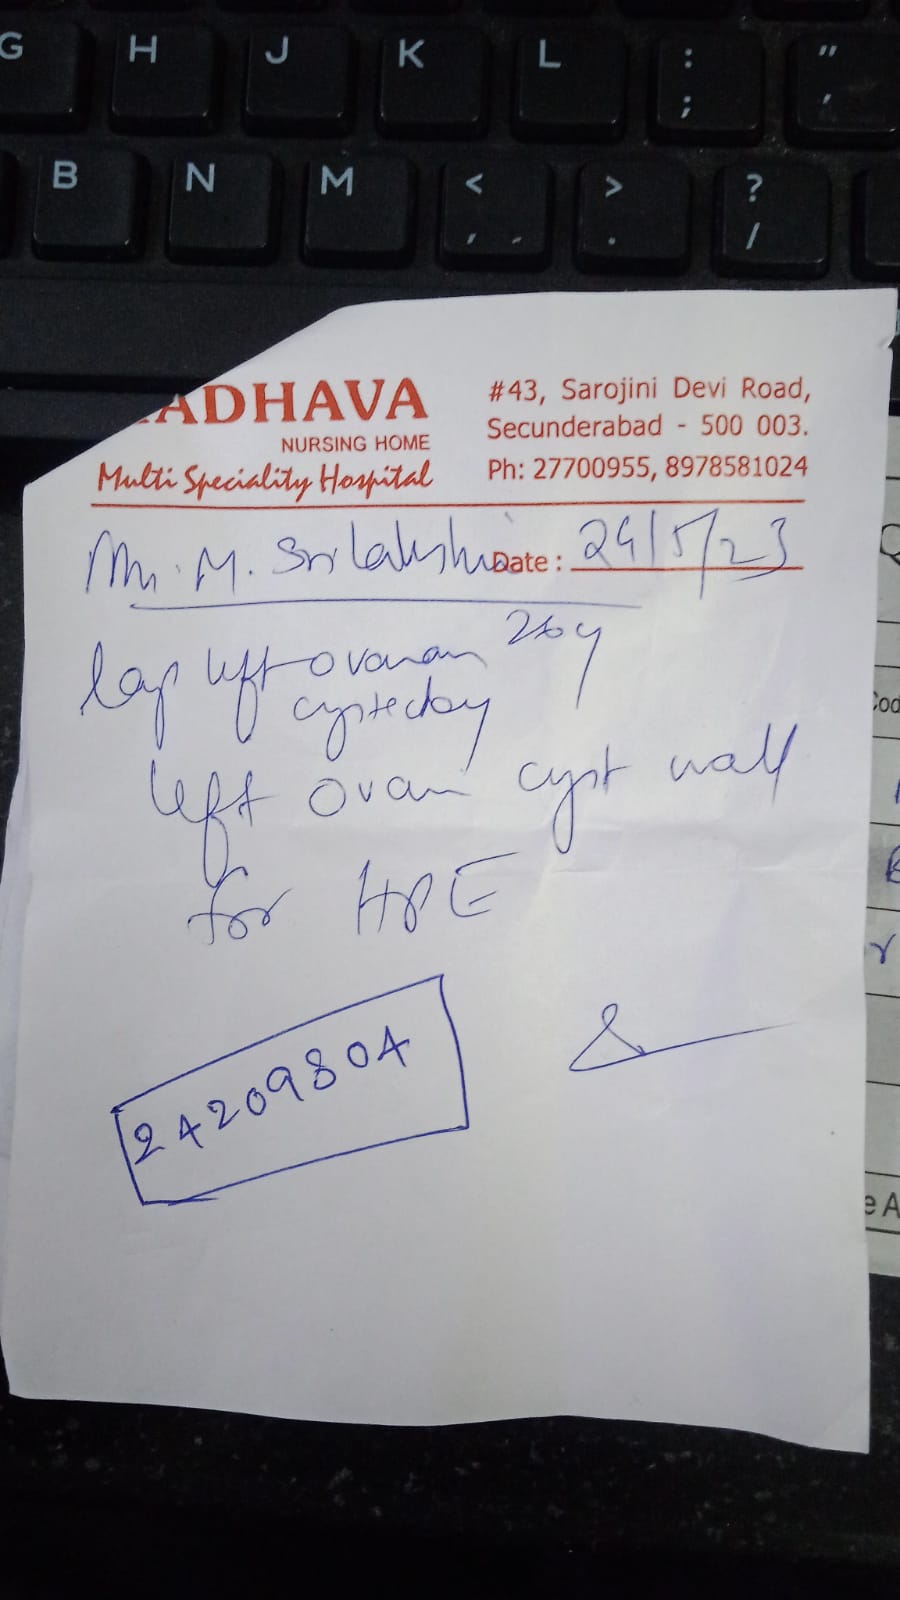 G H J K L : ; " '
B N M < , > . ? /
ADHAVA
NURSING HOME
Multi Speciality Hospital
#43, Sarojini Devi Road,
Secunderabad - 500 003.
Ph: 27700955, 8978581024
M. Srilakshmi Date : 24/5/23
lap left ovarian
left cyst wall
for HPE
24209804